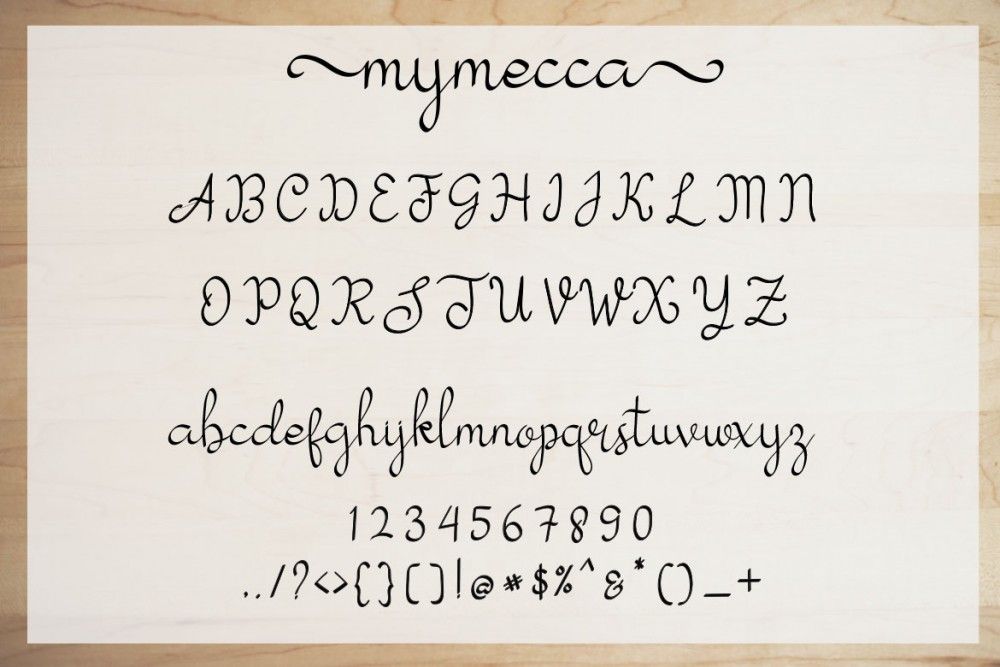 mymecca
ABCDEFGHIJKLMN
OPQRSTUVWXYZ
abcdefghijklmnopqrstuvwxyz
1234567890
../?<>{}[]|@*$%^&*()_+